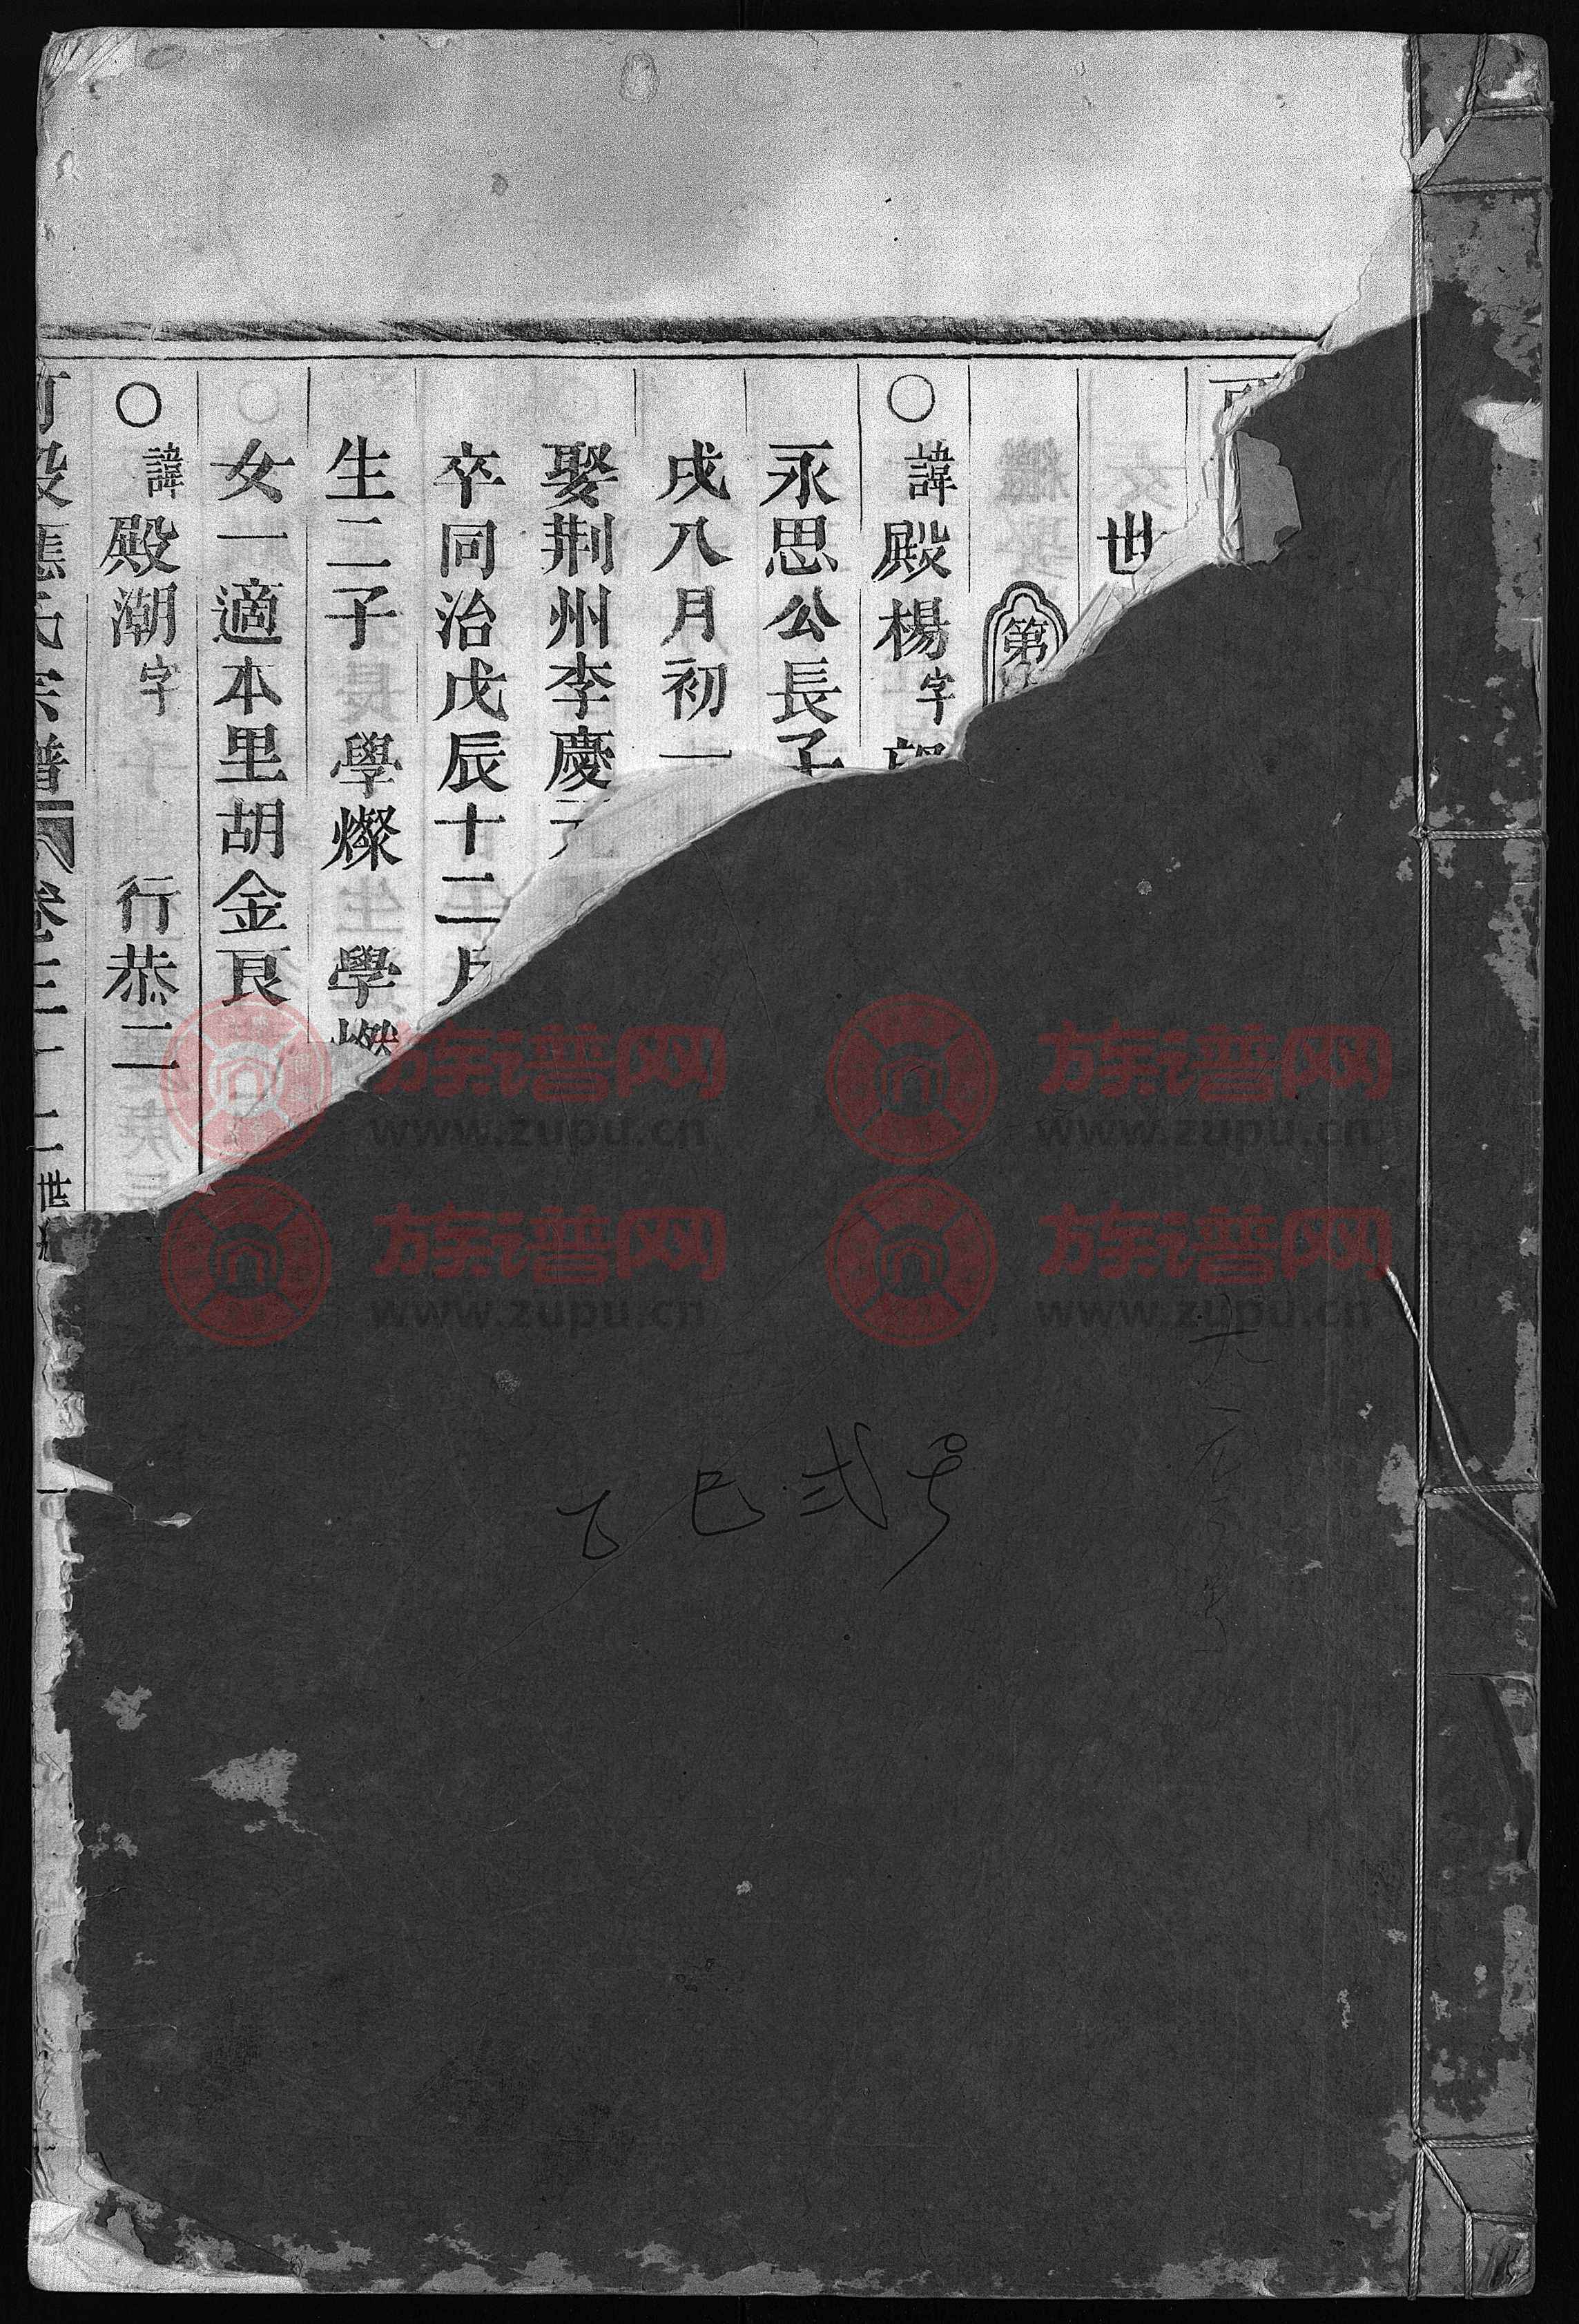 世
第
○諱殿楊字
永思公長子
戌八月初一
娶荆州李慶
卒同治戊辰十二月
生二子 學燦 學
女一適本里胡金良
○諱殿潮字 行恭二
段應氏宗譜 卷三十二 世
乙巳弍号
族谱网
www.zupu.cn
族谱网
www.zupu.cn
族谱网
www.zupu.cn
族谱网
www.zupu.cn